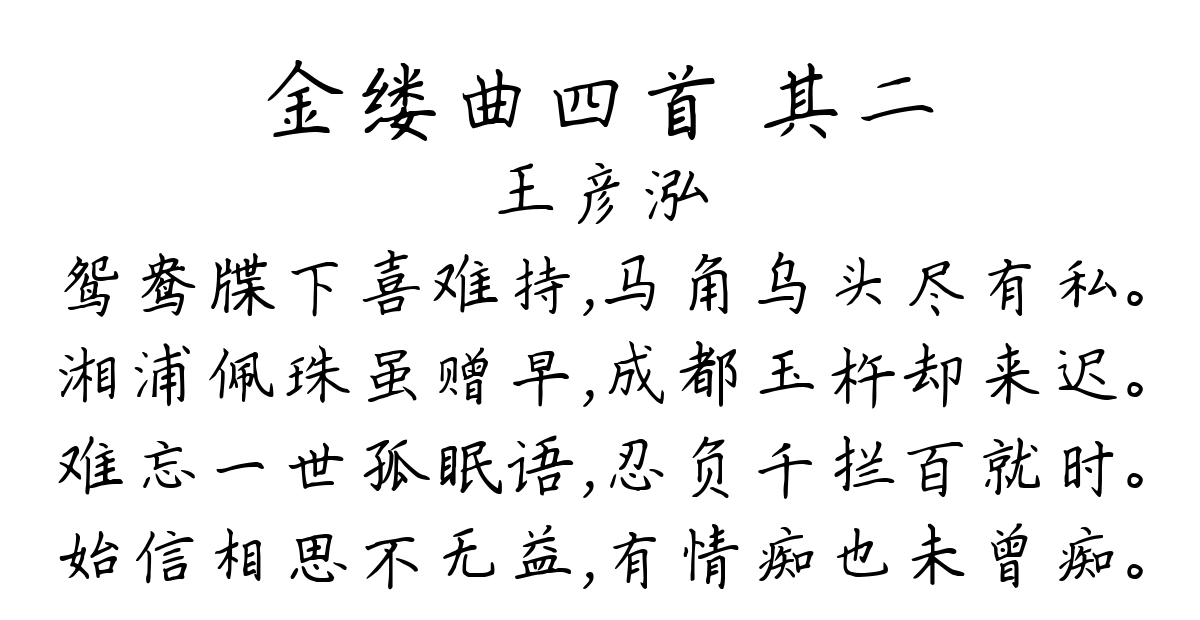 金缕曲四首 其二
王彦泓
鸳鸯牒下喜难持,马角乌头尽有私。
湘浦佩珠虽赠早,成都玉杵却来迟。
难忘一世孤眠语,忍负千拦百就时。
始信相思不无益,有情痴也未曾痴。